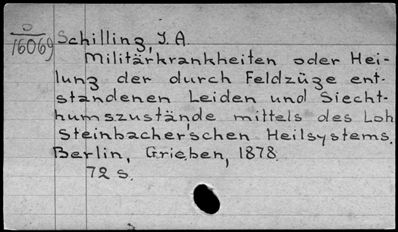 O
16069
Schilling, J. A.
Militärkrankheiten oder Hei-
lung der durch Feldzüge ent-
standenen Leiden und Siecht-
humszustände mittels des Loh
Steinbacher'schen Heilsystems.
Berlin, Grieben, 1878.
72 s.